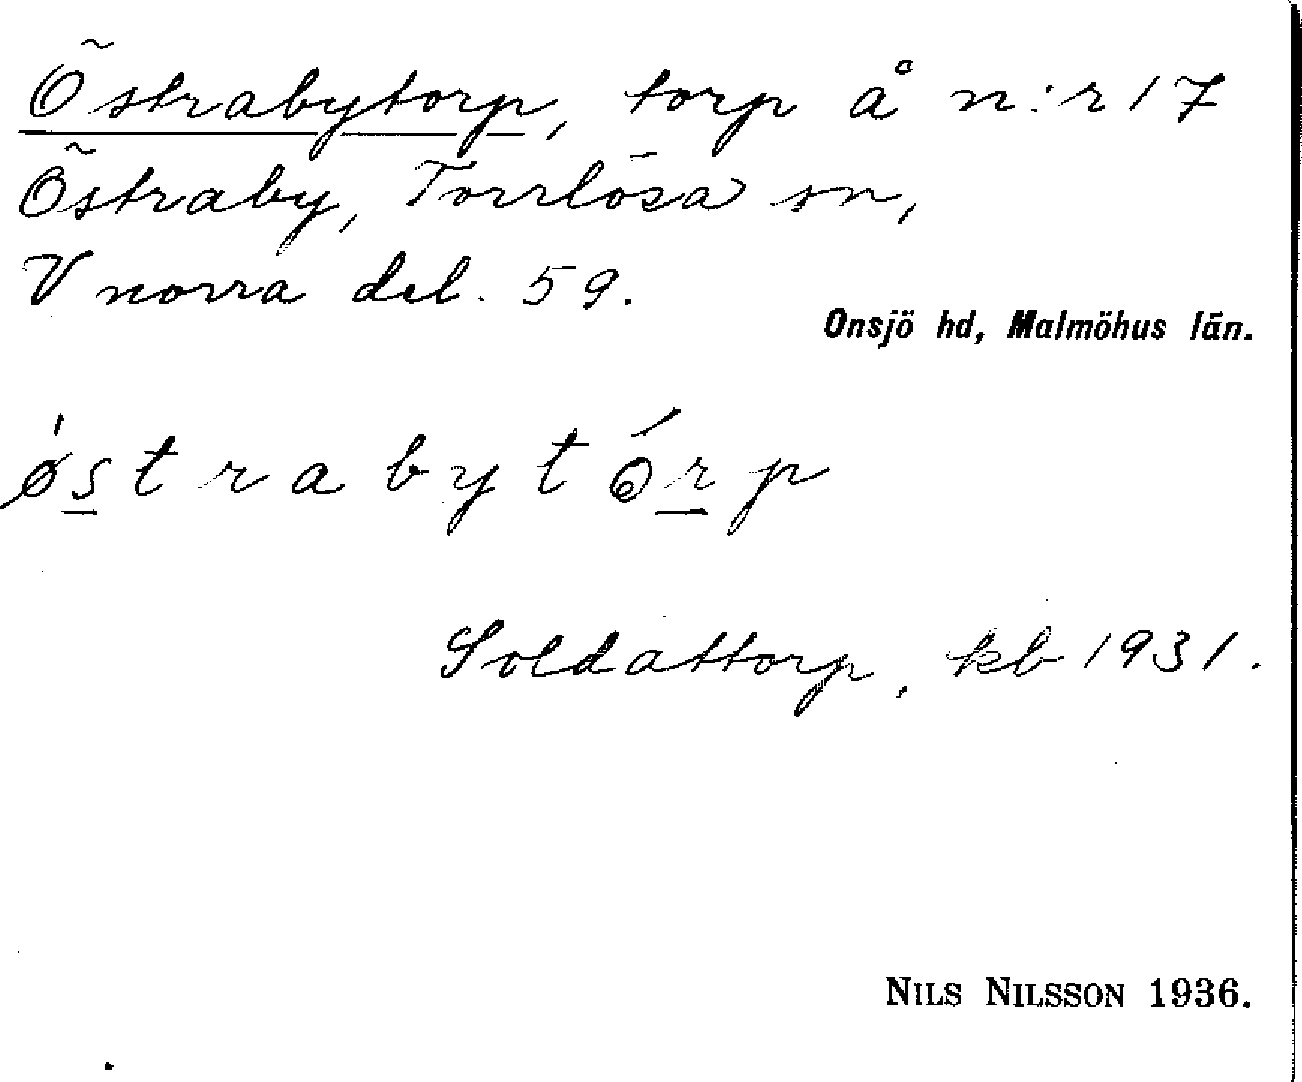 Östrabytorp, torp å n:r 17
Östraby, Torrlösa sn,
V norra del. 59.
Onsjö hd, Malmöhus län.
ǿstrabytórp
Soldattorp, kb 1931.
NILS NILSSON 1936.